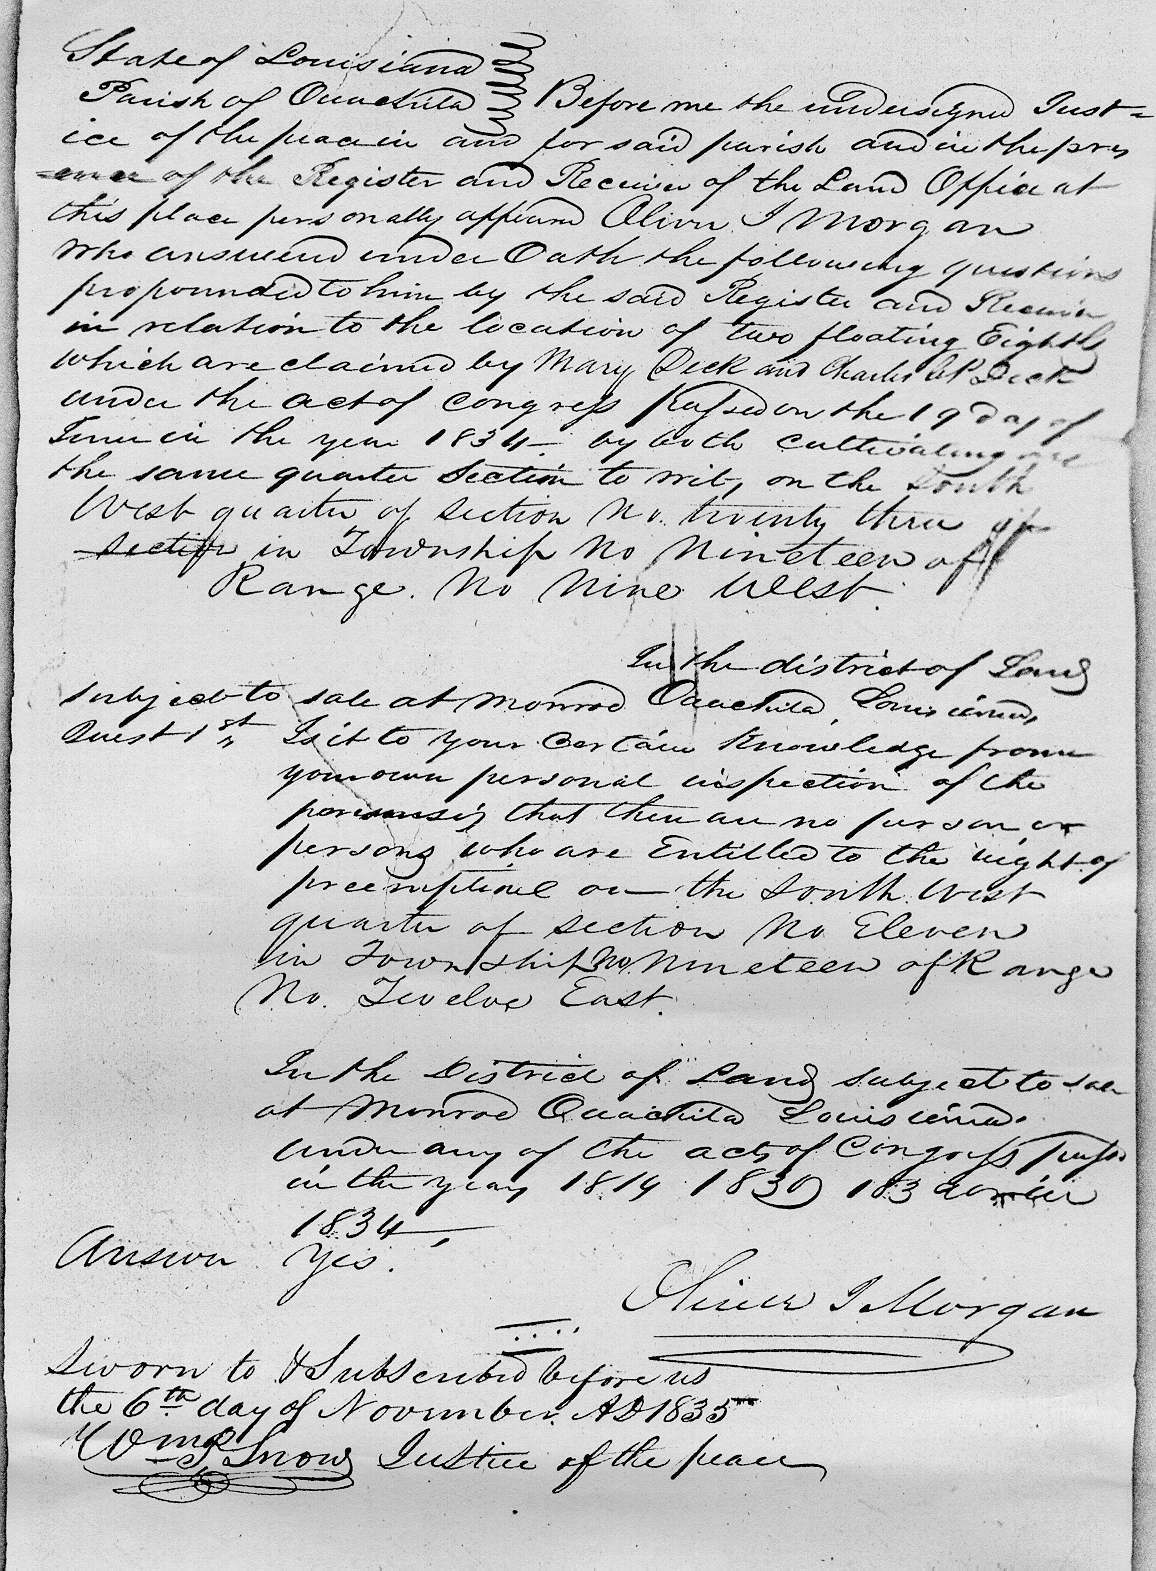 State of Louisiana
Parish of Ouachita Before me the undersigned Just=
ice of the peace in and for said parish and in the pres
=ence of the Register and Receiver of the Land Office at
this place personally appeared Oliver J Morgan
Who answered under Oath the following questions
propounded to him by the said Register and Receiver
in relation to the location of two floating Eights
which are claimed by Mary Deck and Charles Deck
under the act of Congress passed on the 19 day of
June in the year 1834 by both cultivating
the same quarter Section to wit, on the South
West quarter of section No. twenty three of
section in Township No Nineteen of
Range. No Nine West.
In the district of Land
subject to sale at Monroe Ouachita, Louisiana,
Quest 1st, Is it to your certain Knowledge from
your own personal inspection of the
that there are no person or
persons who are Entitled to the right of
preemption on the South West
quarter of section No Eleven
in Township No Nineteen of Range
No. Twelve East.
In the District of Land subject to sale
at Monroe Ouachita Louisiana.
under any of the acts of Congress passed
in the years 1814 1830 183 or in
1834,
Answer Yes.
Oliver J Morgan
Sworn to & Subscribed before us
the 6th day of November. AD 1835
Wm P. Snow Justice of the peace